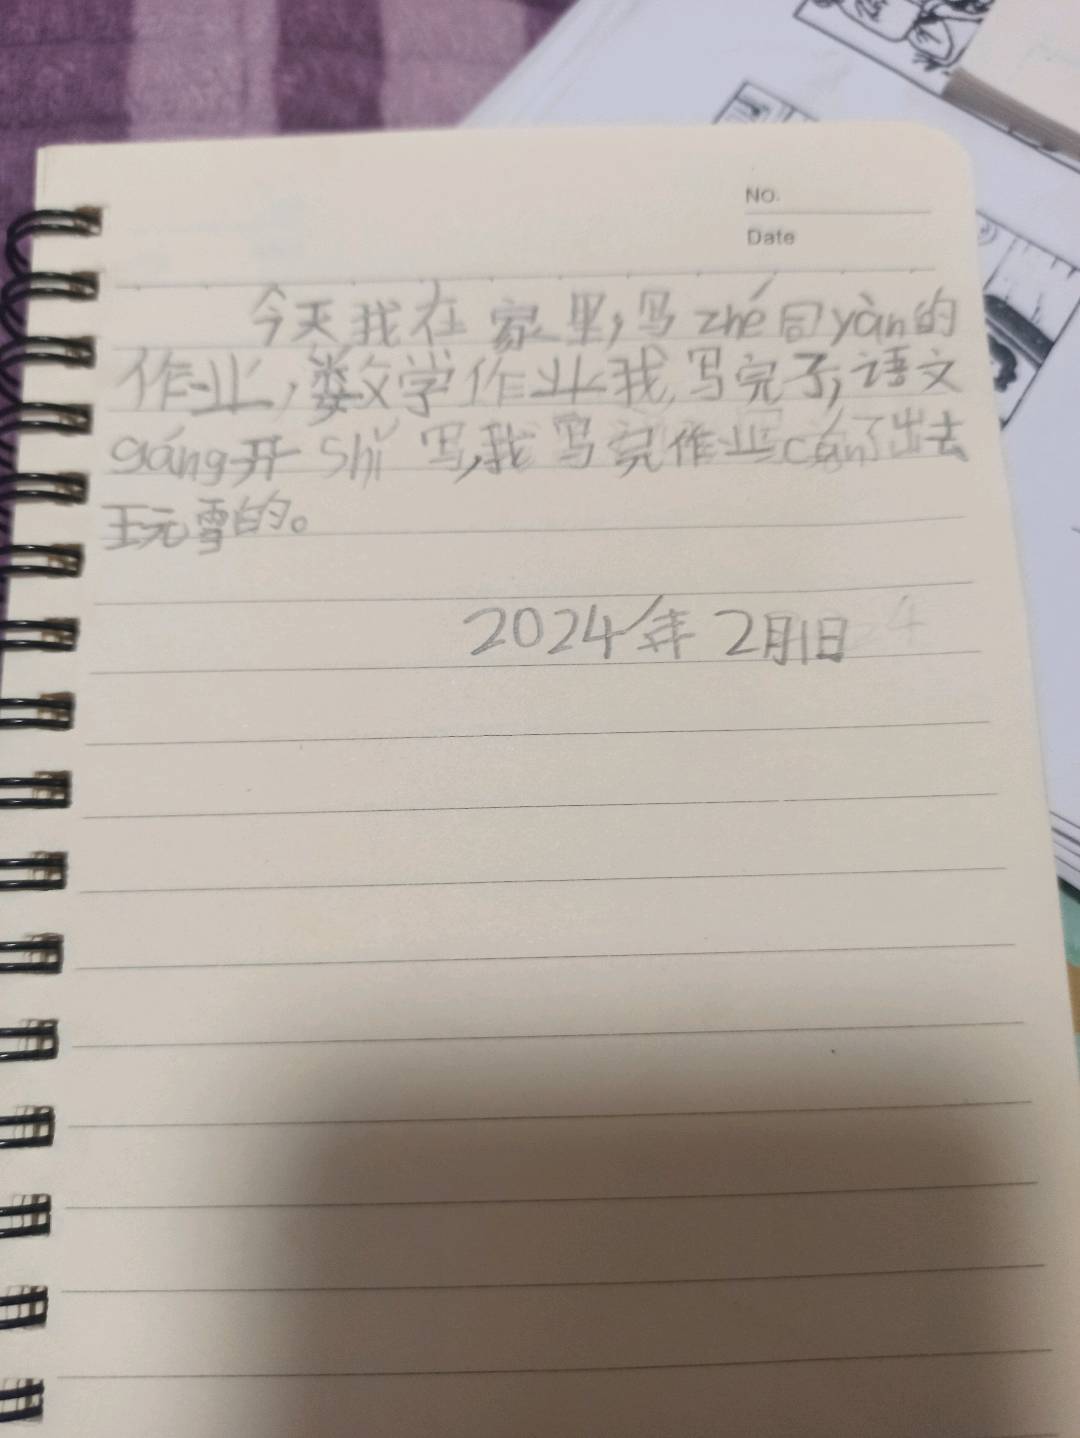 NO.
Date
今天我在家里,写zhé同yàn的
作业,数学作业我写完了,语文
gáng开shǐ写,我写完作业cán了出去
玩雪的。
2024年2月1日